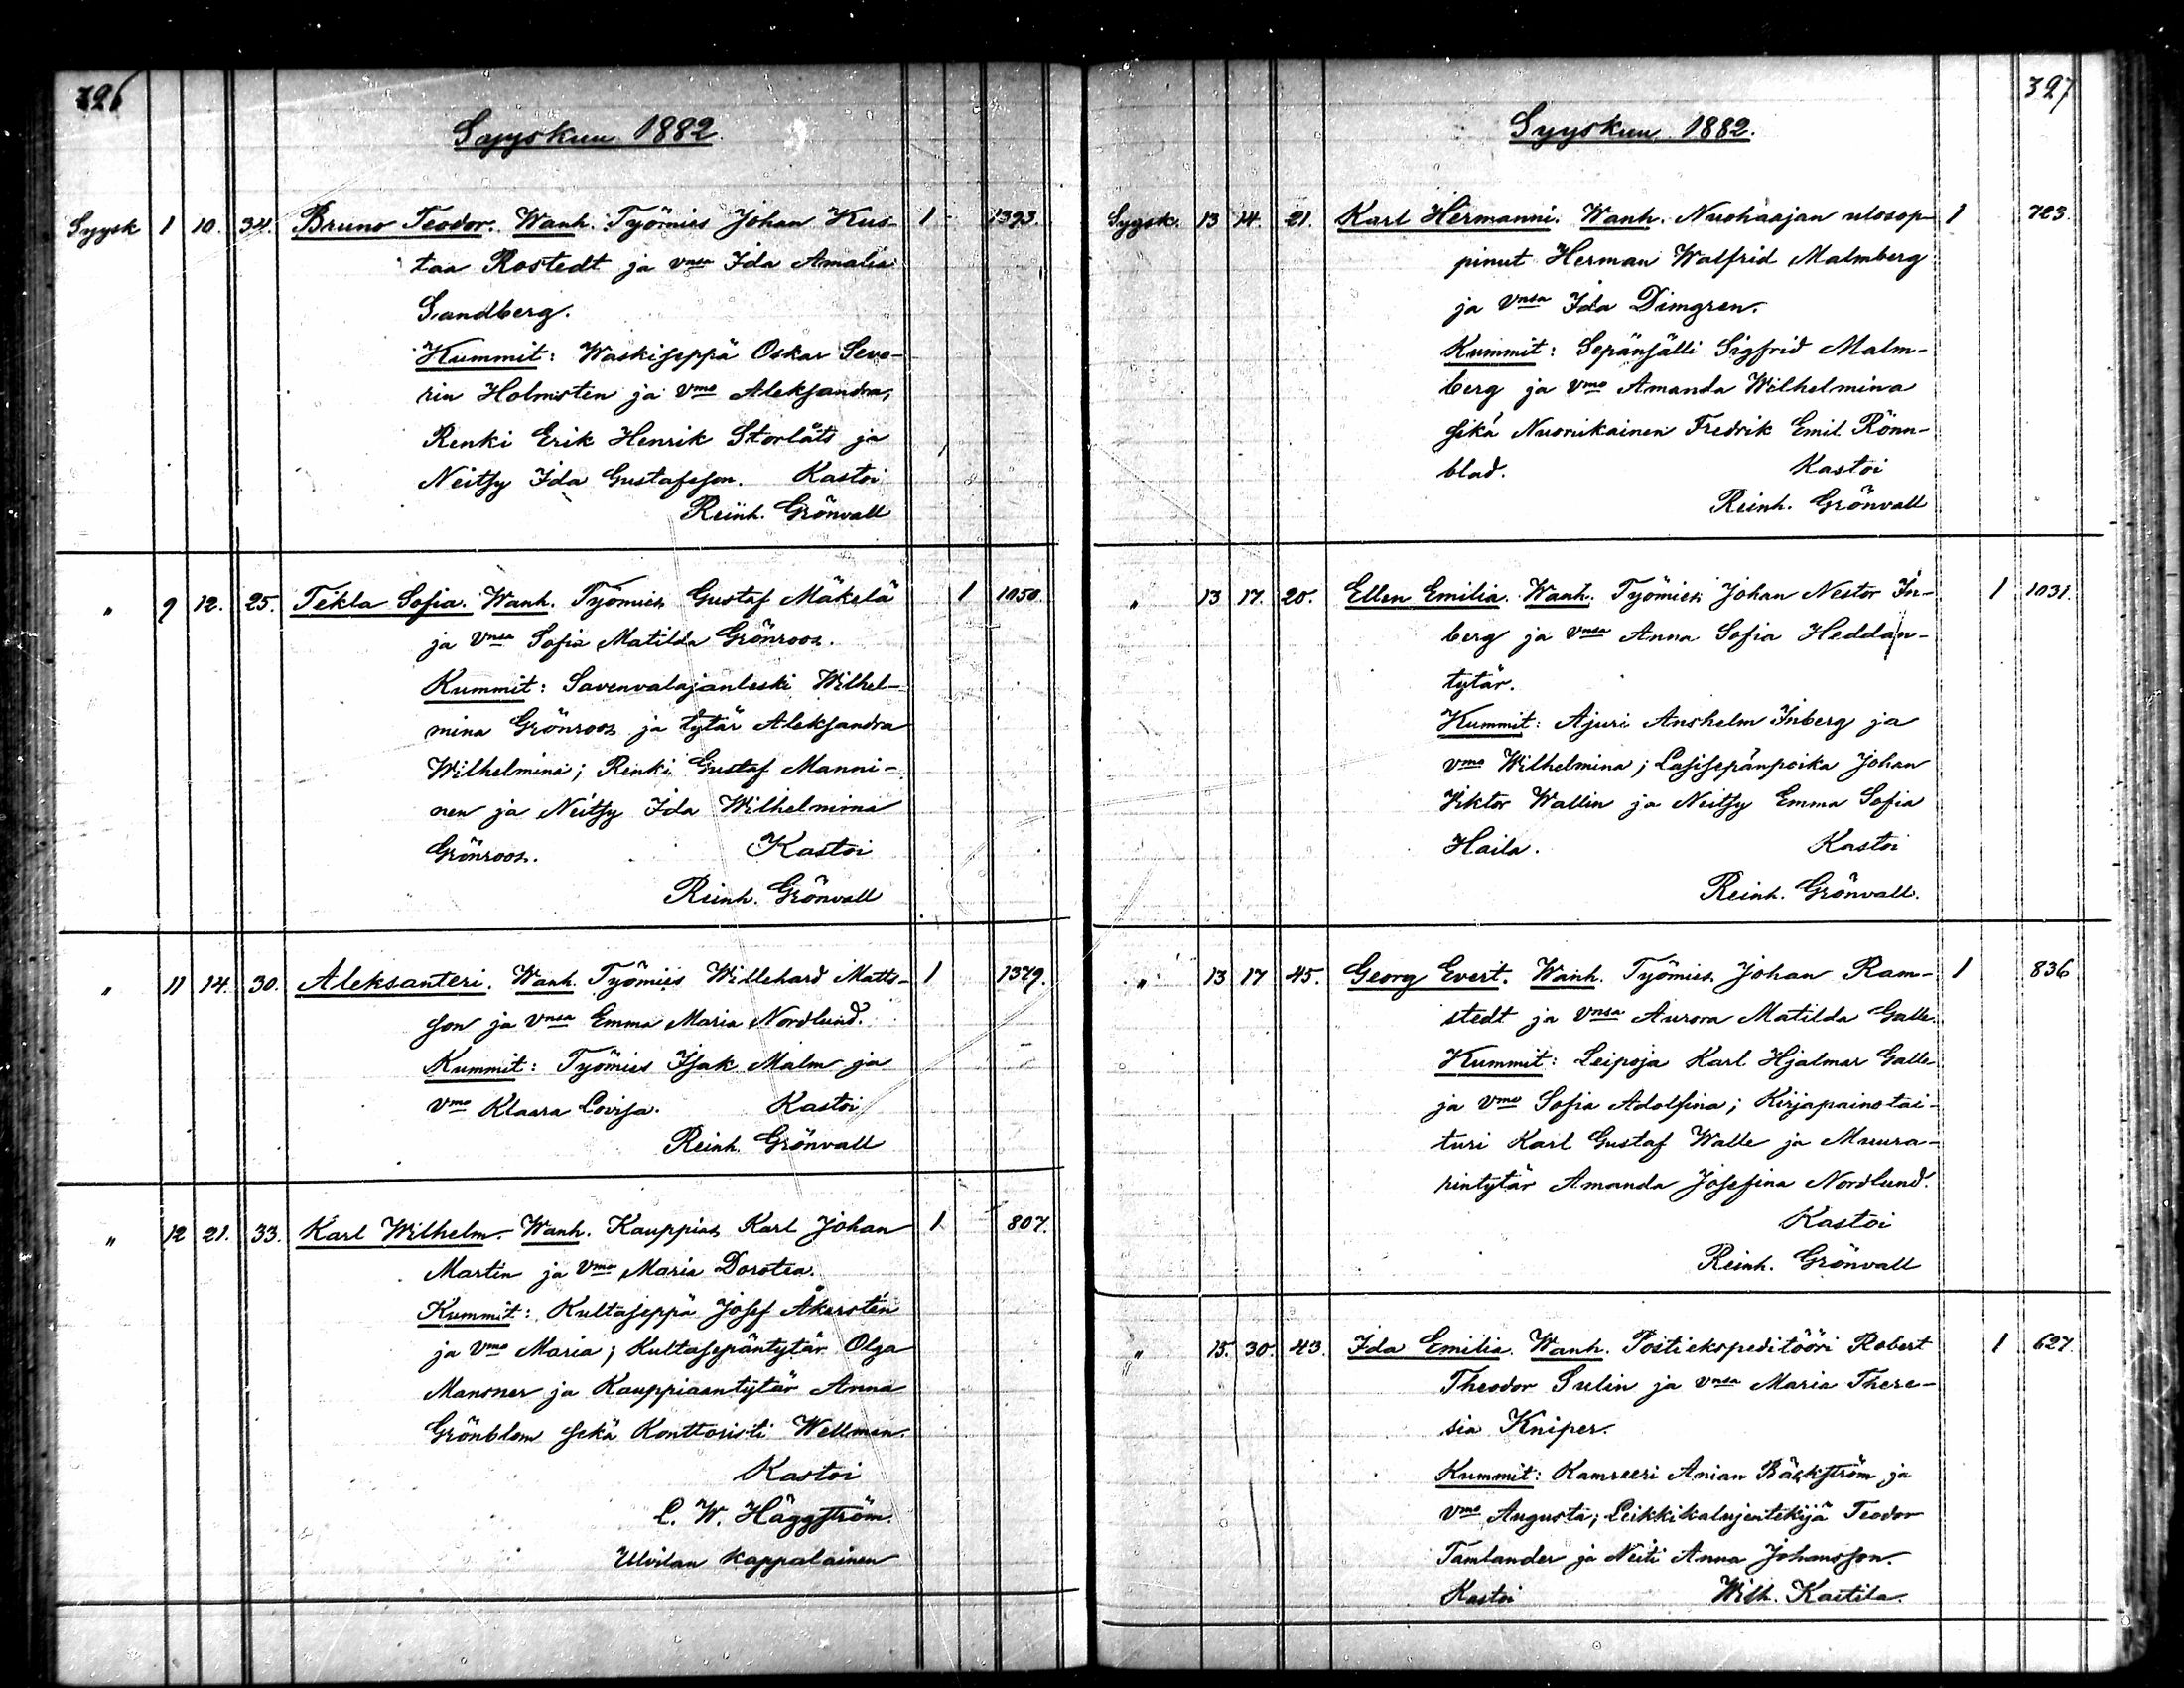 326
Syyskuu 1882.
Syysk 1 10. 34. Bruno Teodor. Wanh. Työmies Johan Kus- 1 1393.
taa Rostedt ja vnsa Ida Amalia
Sandberg.
Kummit: Waskiseppä Oskar Seve-
rin Holmsten ja vmo Aleksandra,
Renki Erik Henrik Storlåts ja
Neitsy Ida Gustafsson. Kastoi
Reinh. Grönvall
" 9 12. 25. Tekla Sofia. Wanh. Työmies Gustaf Mäkelä 1 1050.
ja vnsa Sofia Matilda Grönroos.
Kummit: Savenvalajanleski Wilhel-
mina Grönroos ja tytär Aleksandra
Wilhelmina; Renki Gustaf Manni-
nen ja Neitsy Ida Wilhelmina
Grönroos. Kastoi
Reinh. Grönvall
" 11 14. 30. Aleksanteri. Wanh. Työmies Willehard Matts- 1 1379.
son ja vnsa Emma Maria Nordlund.
Kummit: Työmies Isak Malm ja
vmo Klaara Lovisa. Kastoi
Reinh. Grönvall
" 12 21. 33. Karl Wilhelm. Wanh. Kauppias Karl Johan 1 807.
Martin ja vmo Maria Dorotea.
Kummit: Kultaseppä Josef Åkerstén
ja vmo Maria; Kultasepäntytär Olga
Mansner ja Kauppiaantytär Anna
Grönblom sekä Konttoristi Wellman.
Kastoi
C. W. Häggström
Ulvilan kappalainen
327
Syyskuu 1882.
Syysk. 13 14. 21. Karl Hermanni. Wanh. Nuohaajan ulosop- 1 723.
pinut Herman Walfrid Malmberg
ja vnsa Ida Dimgren.
Kummit: Sepänsälli Sigfrid Malm-
berg ja vmo Amanda Wilhelmina
sekä Nuorukainen Fredrik Emil Rönn-
blad. Kastoi
Reinh. Grönvall
" 13 17. 20. Ellen Emilia. Wanh. Työmies Johan Nestor In- 1 1031.
berg ja vnsa Anna Sofia Heddan-
tytär.
Kummit: Ajuri Anshelm Inberg ja
vmo Wilhelmina; Lasisepänpoika Johan
Viktor Wallin ja Neitsy Emma Sofia
Haila. Kastoi
Reinh. Grönvall.
" 13 17 45. Georg Evert. Wanh. Työmies Johan Ram- 1 836
stedt ja vnsa Aurora Matilda Galle.
Kummit: Leipoja Karl Hjalmar Galle
ja vmo Sofia Adolfina; Kirjapainotai-
turi Karl Gustaf Walle ja Muura-
rintytär Amanda Josefina Nordlund.
Kastoi
Reinh. Grönvall
" 15. 30. 43. Ida Emilia. Wanh. Postiekspeditööri Robert 1 627.
Theodor Sulin ja vnsa Maria There-
sia Kniper.
Kummit: Kamreeri Anian Bäckström ja
vmo Augusta; Leikkikalujentekijä Teodor
Tamlander ja Neiti Anna Johansson.
Kastoi Wilh. Kaitila.